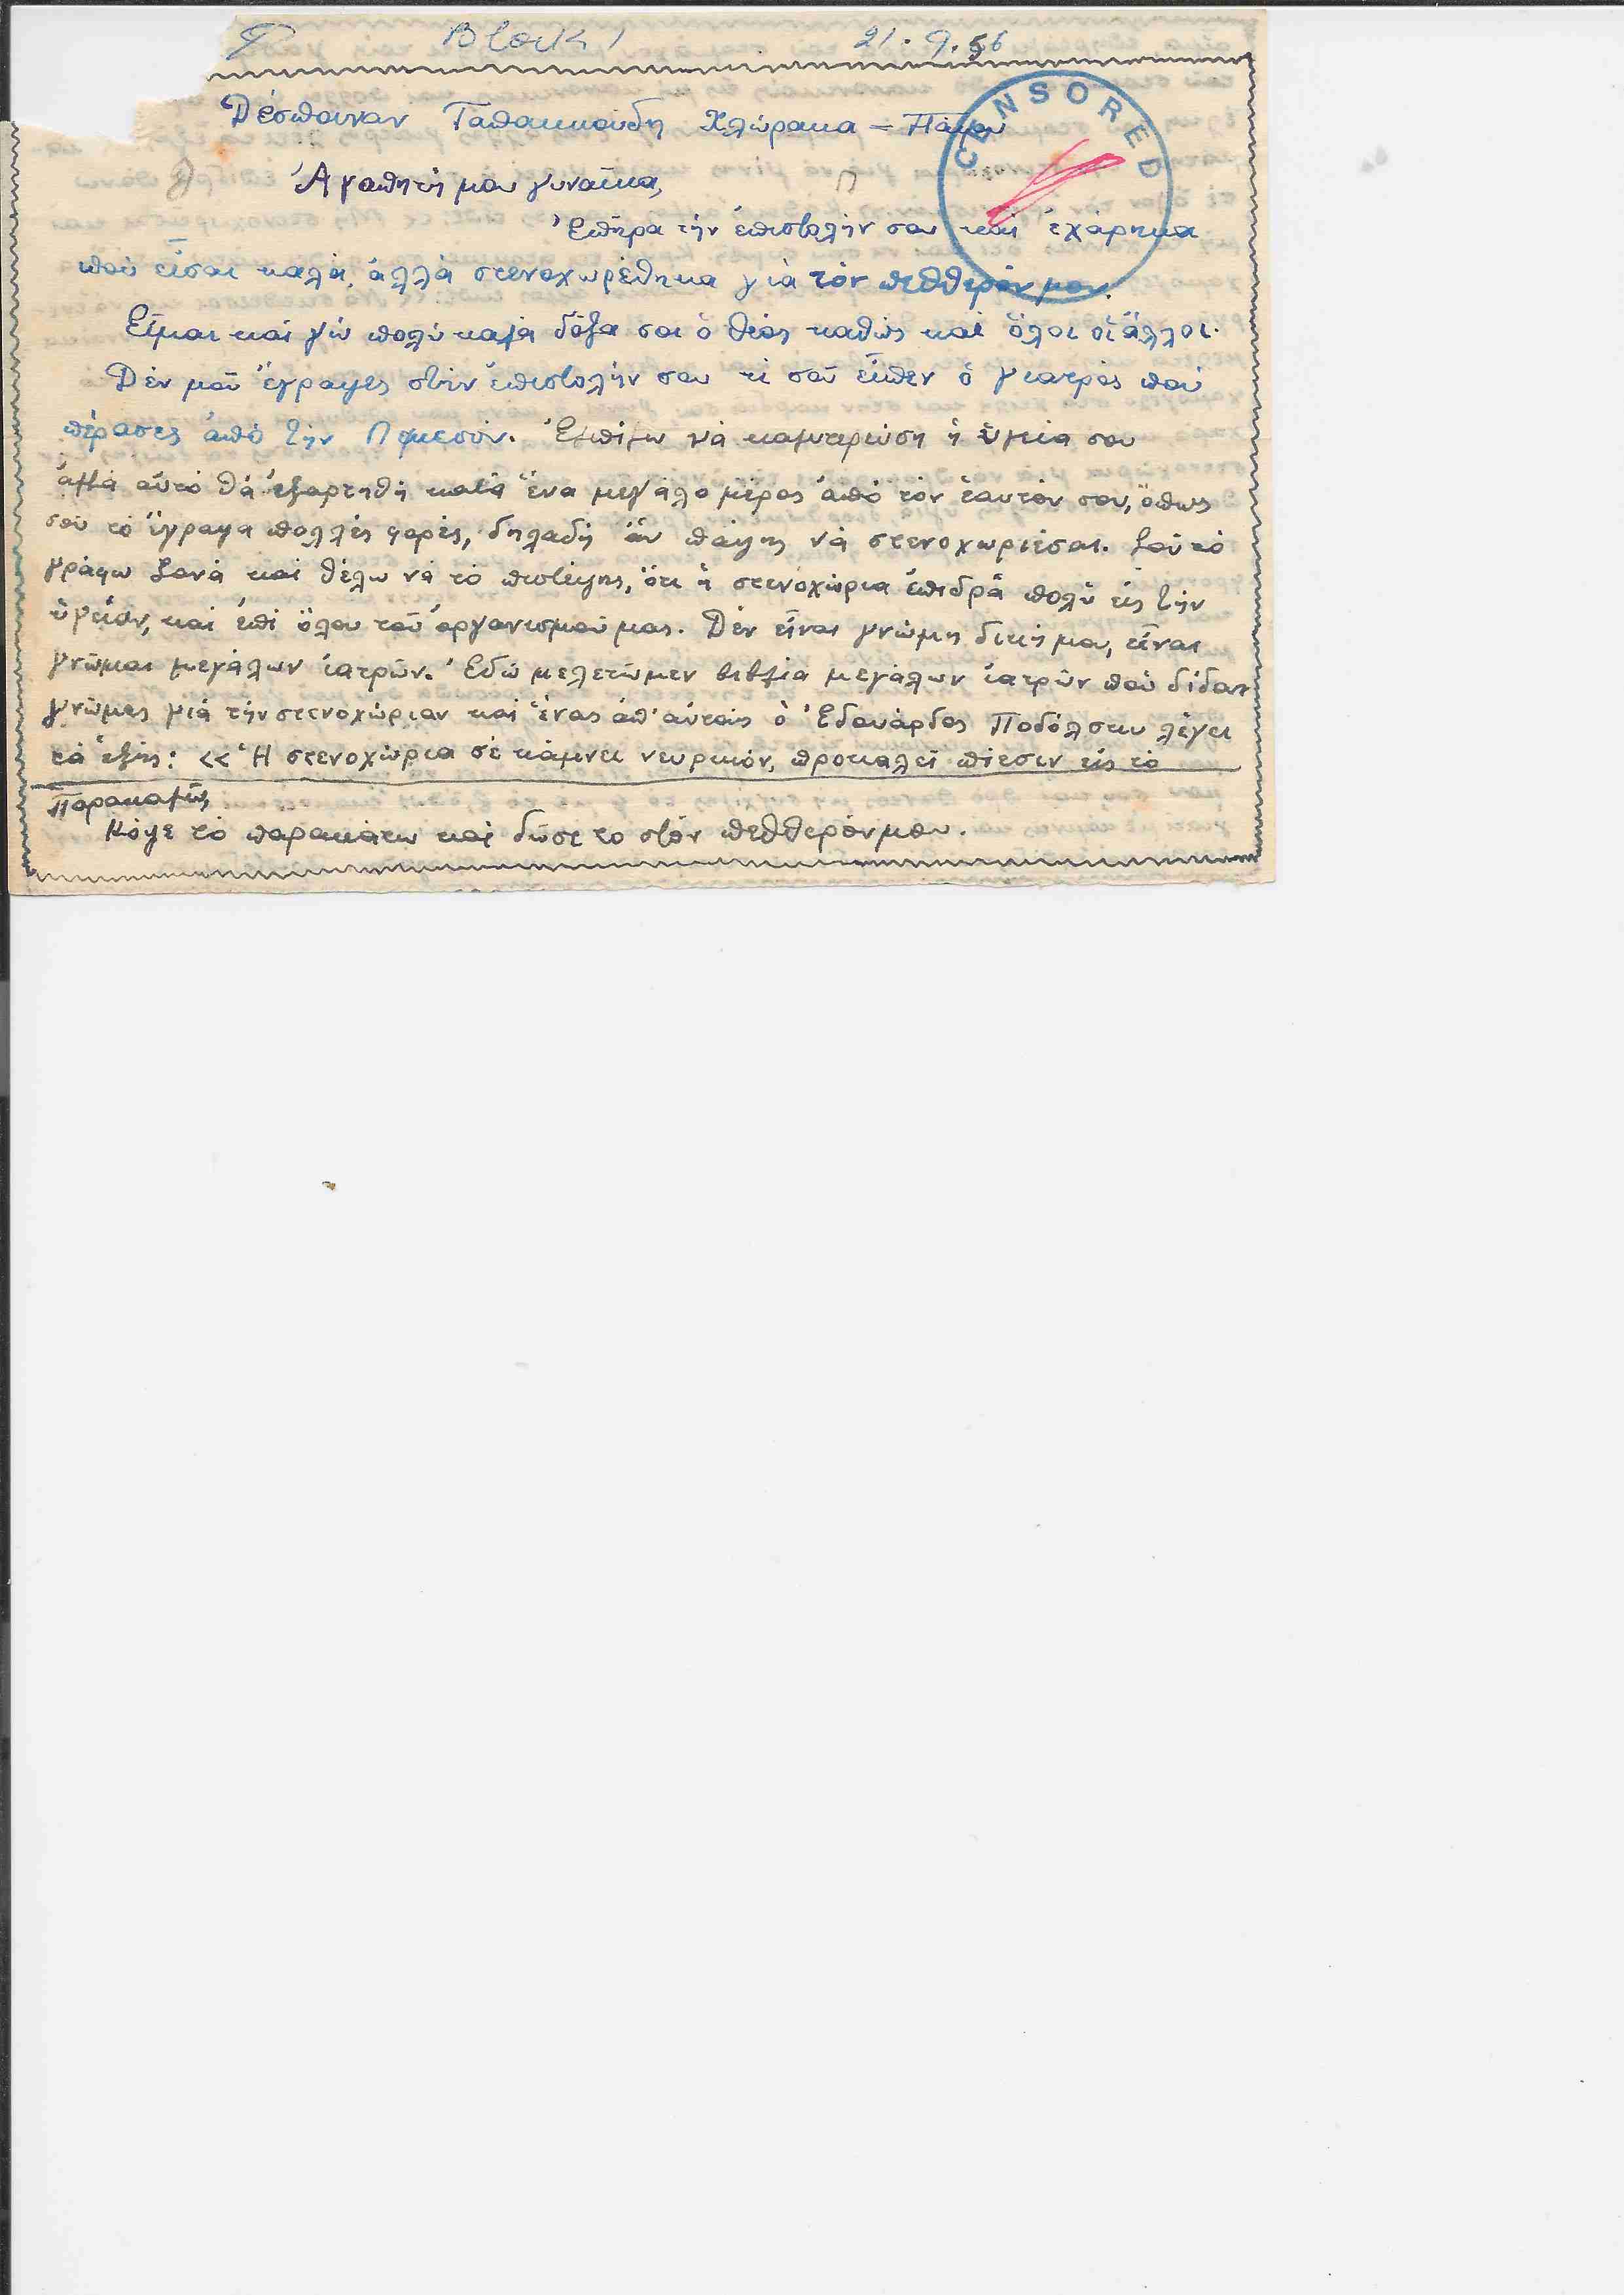 Block 1 21.9.56
CENSORED
Δέσποιναν Ταπακκούδη Χλώρακα - Πάφου
Ἀγαπητή μου γυναῖκα,
Ἐπῆρα τήν ἐπιστολήν σου καί ἐχάρηκα
πού εἶσαι καλά, ἀλλά στενοχωρέθηκα γιά τόν πεθθερόν μου.
Εἶμαι καί γώ πολύ καλά δόξα σοι ὁ θεός καθώς καί ὅλοι οἱ ἄλλοι.
Δέν μοῦ ἔγραψες στήν ἐπιστολήν σου τί σοῦ εἶπεν ὁ γιατρός πού
πέρασες ἀπό τήν Λεμεσόν. Ἐλπίζω νά καλυτερεύση ἡ ὑγεία σου
ἀλλά αὐτό θά ἐξαρτηθῆ κατά ἕνα μεγάλο μέρος ἀπό τόν ἑαυτόν σου, ὅπως
σοῦ τό ἔγραψα πολλές φορές, δηλαδή ἄν πάψης νά στενοχωριέσαι. Σοῦ τό
γράφω ξανά καί θέλω νά τό πιστέψης, ὅτι ἡ στενοχώρια ἐπιδρᾶ πολύ εἰς τήν
ὑγείαν, καί ἐπί ὅλου τοῦ ὀργανισμοῦ μας. Δέν εἶναι γνώμη δική μου, εἶναι
γνῶμαι μεγάλων ἰατρῶν. Ἐδῶ μελετῶμεν βιβλία μεγάλων ἰατρῶν πού δίδουν
γνώμες γιά τήν στενοχώριαν καί ἕνας ἀπ' αὐτούς ὁ Ἐδουάρδος Ποδόλσκυ λέγει
τά ἑξῆς: << Ἡ στενοχώρια σέ κάμνει νευρικόν, προκαλεῖ πίεσιν εἰς τό
Παρακαλῶ,
Κόψε τό παρακάτω καί δῶσε το στόν πεθθερόν μου.